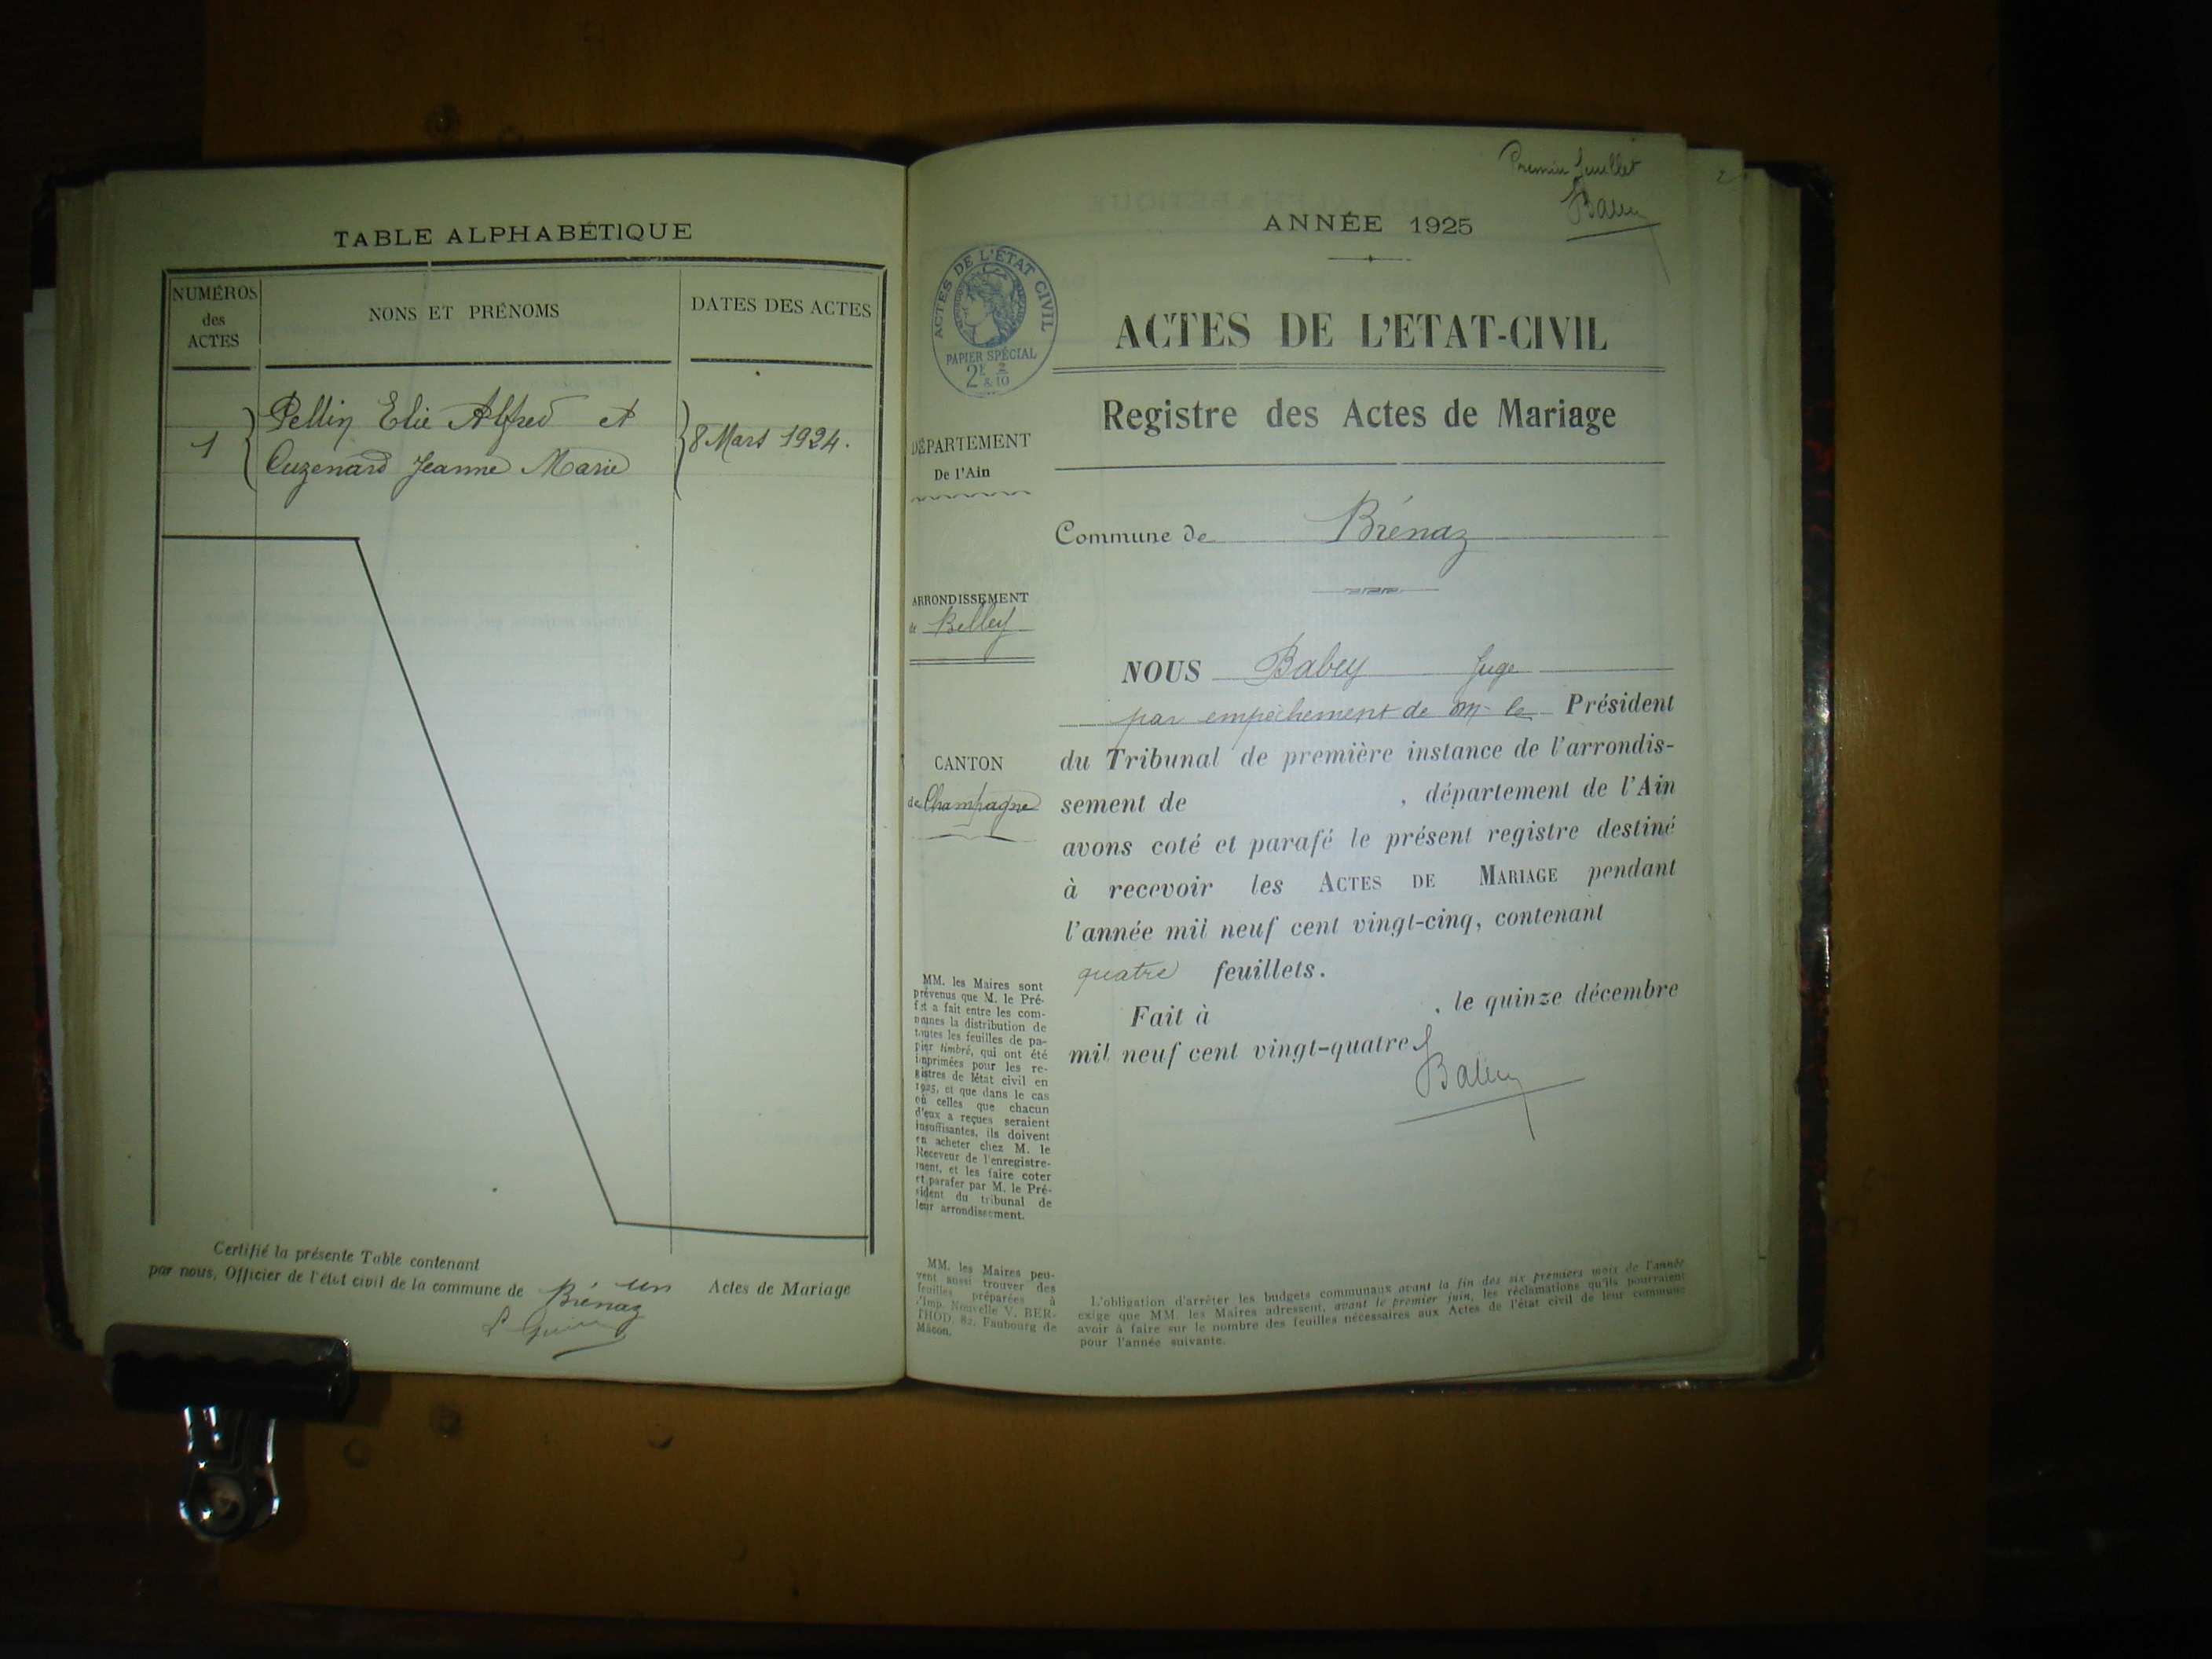 TABLE ALPHABÉTIQUE
NUMÉROS
des
ACTES
NONS ET PRÉNOMS
DATES DES ACTES
1
Pellin Elie Alfred et
Cuzenard Jeanne Marie
8 Mars 1924.
Certifié la présente Table contenant un Actes de Mariage
par nous, Officier de l'état civil de la commune de Brénaz
Premier feuillet
Babey
2
ANNÉE 1925
ACTES DE L'ÉTAT CIVIL
PAPIER SPÉCIAL
2F 2
& 10
ACTES DE L'ETAT-CIVIL
Registre des Actes de Mariage
DÉPARTEMENT
De l'Ain
Commune de Brénaz
ARRONDISSEMENT
de Belley
CANTON
de Champagne
NOUS Babey Juge
par empêchement de M le Président
du Tribunal de première instance de l'arrondis-
sement de , département de l'Ain
avons coté et parafé le présent registre destiné
à recevoir les ACTES DE MARIAGE pendant
l'année mil neuf cent vingt-cinq, contenant
quatre feuillets.
Fait à , le quinze décembre
mil neuf cent vingt-quatre
Babey
MM. les Maires sont
prévenus que M. le Pré-
fet a fait entre les com-
munes la distribution de
toutes les feuilles de pa-
pier timbré, qui ont été
imprimées pour les re-
gistres de létat civil en
1925, et que dans le cas
où celles que chacun
d'eux a reçues seraient
insuffisantes, ils doivent
en acheter chez M. le
Receveur de l'enregistre-
ment, et les faire coter
et parafer par M. le Pré-
sident du tribunal de
leur arrondissement.
MM. les Maires peu-
vent aussi trouver des
feuilles préparées à
l'Imp. Nouvelle V. BER-
THOD, 82, Faubourg de
Mâcon.
L'obligation d'arrêter les budgets communaux avant la fin des six premiers mois de l'année
exige que MM. les Maires adressent, avant le premier juin, les réclamations qu'ils pourraient
avoir à faire sur le nombre des feuilles nécessaires aux Actes de l'état civil de leur commune
pour l'année suivante.